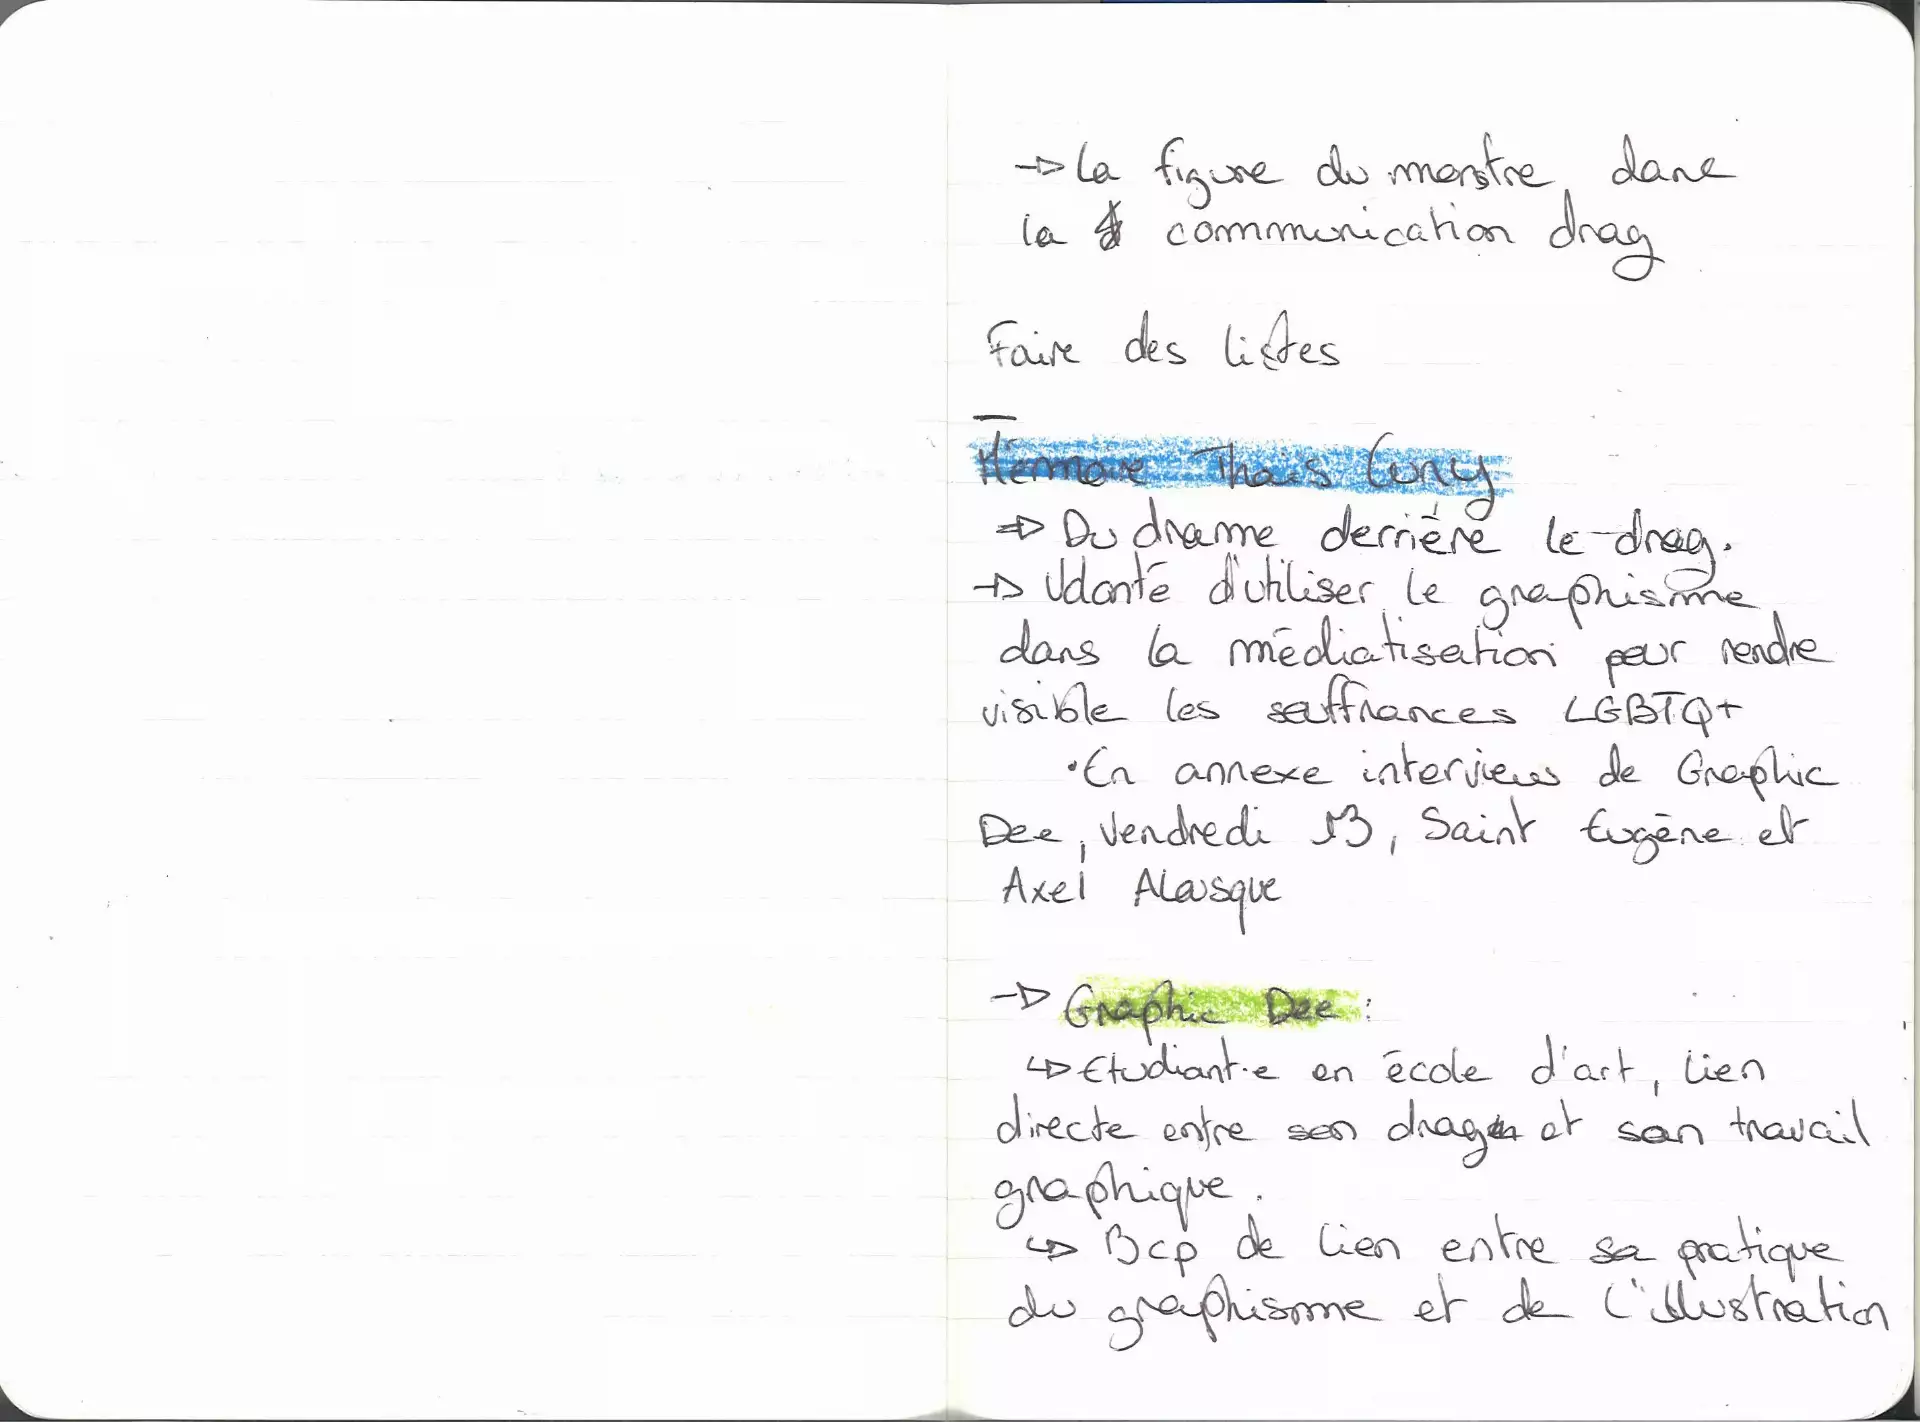 → La figure du monstre, dans
la communication drag
Faire des listes
Mémoire Thaïs Cuny
⇒ Du drame derrière le drag.
→ Volonté d'utiliser le graphisme
dans la médiatisation pour rendre
visible les souffrances LGBTQ+
• En annexe interviews de Graphic
Dee, Vendredi 13, Saint Eugène et
Axel Alousque
→ Graphic Dee :
↳ Etudiant·e en école d'art, lien
directe entre son drag et son travail
graphique.
↳ Bcp de lien entre sa pratique
du graphisme et de l'illustration